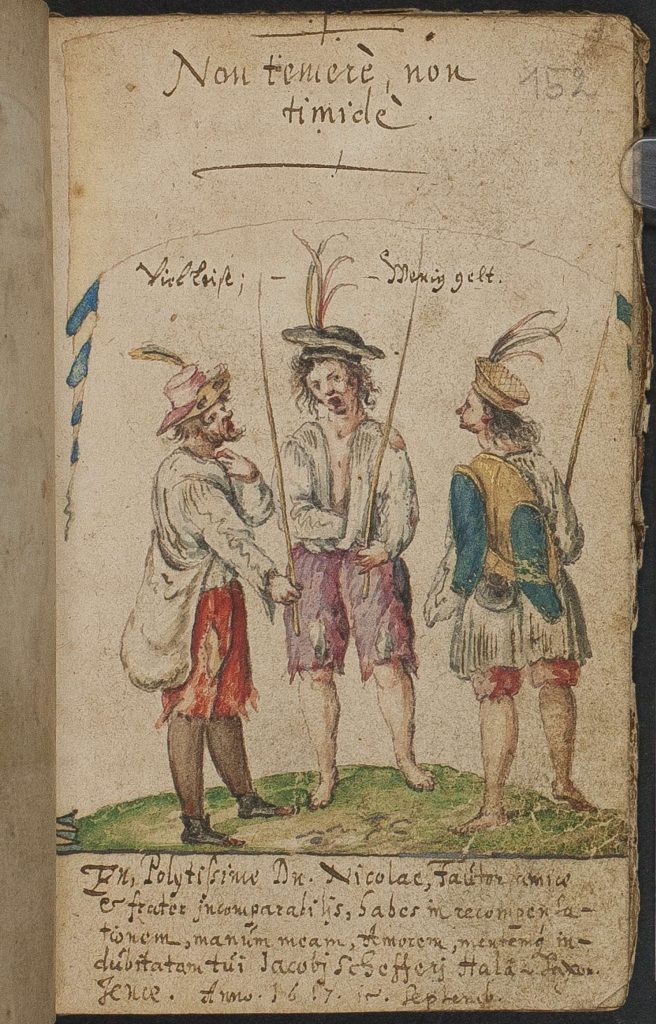 Non temerè, non
timidè.
152
Viel leiß; - - Wenig gelt.
En, Polytissime Dn. Nicolae, Fautor amice
& frater incomparabilis, habes in recompensa-
tionem, manum meam, Amorem, mentemq in-
dubitatam tui Jacobi Schefferj Halâ-Saxo-
Anno. 1617. Septemb.